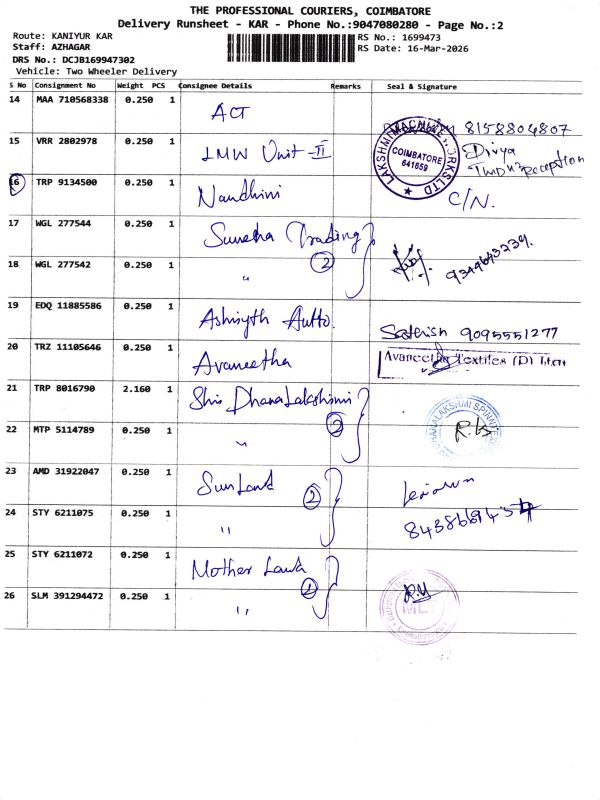 THE PROFESSIONAL COURIERS, COIMBATORE
Delivery Runsheet - KAR - Phone No.:9047080280 - Page No.:2
Route: KANIYUR KAR
Staff: AZHAGAR
DRS No.: DCJB169947302
Vehicle: Two Wheeler Delivery
RS No.: 1699473
RS Date: 16-Mar-2026
S No Consignment No Weight PCS Consignee Details Remarks Seal & Signature
14 MAA 710568338 0.250 1 ACT 8158804807
15 VRR 2802978 0.250 1 LMW Unit-II LAKSHMI MACHINE WORKS LTD COIMBATORE 641659 Divya Reception
16 TRP 9134500 0.250 1 Nandhini C/N.
17 WGL 277544 0.250 1 Sumetha Trading
18 WGL 277542 0.250 1 " 2 9344643239.
19 EDQ 11885586 0.250 1 Ashisyth Autto. Sathish 9095551277
20 TRZ 11105646 0.250 1 Avaneetha Avaneetha Textiles (P) Ltd
21 TRP 8016790 2.160 1 Shri DhanaLakshimi
22 MTP 5114789 0.250 1 " 2 DHANALAKSHMI R.K
23 AMD 31922047 0.250 1 SunLand 2
24 STY 6211075 0.250 1 "
25 STY 6211072 0.250 1 Mother Land
26 SLM 391294472 0.250 1 "